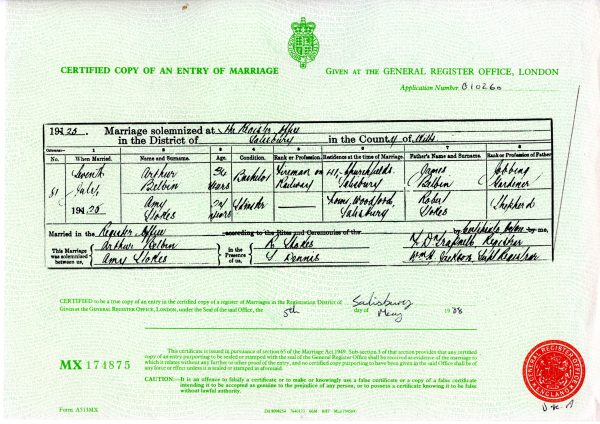 CERTIFIED COPY OF AN ENTRY OF MARRIAGE
GIVEN AT THE GENERAL REGISTER OFFICE, LONDON
Application Number
1925. Marriage solemnized at The Register Office
in the District of Salisbury in the County of Wilts
Columns:— 1 2 3 4 5 6 7 8
No. When Married. Name and Surname. Age. Condition. Rank or Profession. Residence at the time of Marriage. Father's Name and Surname. Rank or Profession of Father
51 Seventh July 1925
Arthur Belbin 36 years Bachelor Fireman on Railway Churchfields Salisbury James Belbin Jobbing Gardener
Amy Stokes years Spinster Woodford, Salisbury Robert Stokes Shepherd
Married in the Register Office according to the Rites and Ceremonies of the by Certificate before by me,
This Marriage was solemnized between us,
Arthur Belbin
Amy Stokes
in the Presence of us,
R Stokes
Dennis
Registrar
Supt Registrar
CERTIFIED to be a true copy of an entry in the certified copy of a register of Marriages in the Registration District of Salisbury
GIVEN AT THE GENERAL REGISTER OFFICE, LONDON, under the Seal of the said Office, the 5th day of May 1988
MX 174875
This certificate is issued in pursuance of section 65 of the Marriage Act 1949. Sub-section 3 of that section provides that any certified
copy of an entry purporting to be sealed or stamped with the seal of the General Register Office shall be received as evidence of the marriage to
which it relates without any further or other proof of the entry, and no certified copy purporting to have been given in the said Office shall be of
any force or effect unless it is sealed or stamped as aforesaid.
CAUTION:— It is an offence to falsify a certificate or to make or knowingly use a false certificate or a copy of a false certificate
intending it to be accepted as genuine to the prejudice of any person, or to possess a certificate knowing it to be false
without lawful authority.
GENERAL REGISTER OFFICE
ENGLAND
Form A513MX